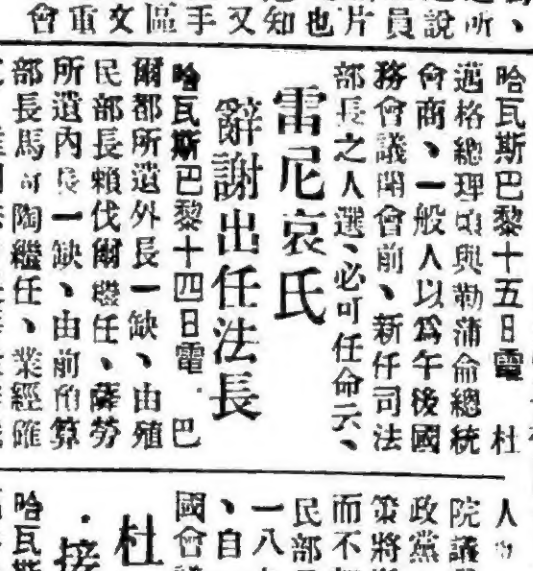 所、
說
員
片
也
知
又
手
區
文
重
會
哈瓦斯巴黎十五日電 杜
邁格總理頃與勒蒲侖總統
會商、一般人以爲午後國
務會議開會前、新任司法
部長之人選、必可任命云、
雷尼哀氏
辭謝出任法長
哈瓦斯巴黎十四日電 巴
爾都所遺外長一缺、由殖
民部長賴伐爾繼任、薩勞
所遺內長一缺、由前預算
部長馬可陶繼任、業經確
人
院議
政黨
策將
而不
民部
一八
、自
國會
杜
接
哈瓦斯